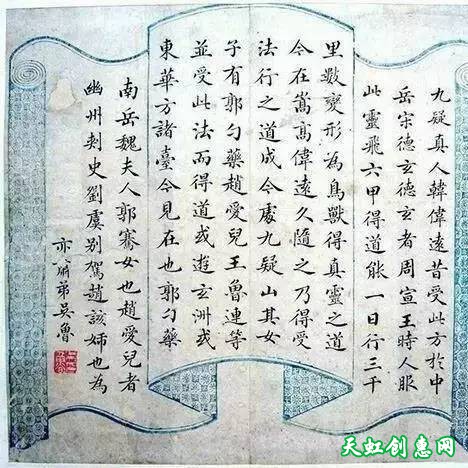 九疑真人韓偉遠昔受此方於中
岳宗德玄德玄者周宣王時人服
此靈飛六甲得道能一日行三千
里數變形為鳥獸得真靈之道
今在嵩高偉遠久隨之乃得受
法行之道成今處九疑山其女
子有郭勺藥趙愛兒王魯連等
並受此法而得道或遊玄洲或
東華方諸臺今見在也郭勺藥
南岳魏夫人郭騫女也趙愛兒者
幽州刺史劉虞别駕趙該姊也為
弟吳魯
天虹创意网